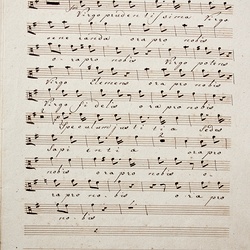 Virgo prudentissima Virgo
veneranda ora pro nobis
ora pro nobis Virgo potens
Virgo Clemens ora pro nobis
Virgo fidelis ora pro nobis
Speculum justitia Sedes
Sapientia ora pro
nobis ora pro nobis o-
ra pro nobis ora pro
nobis